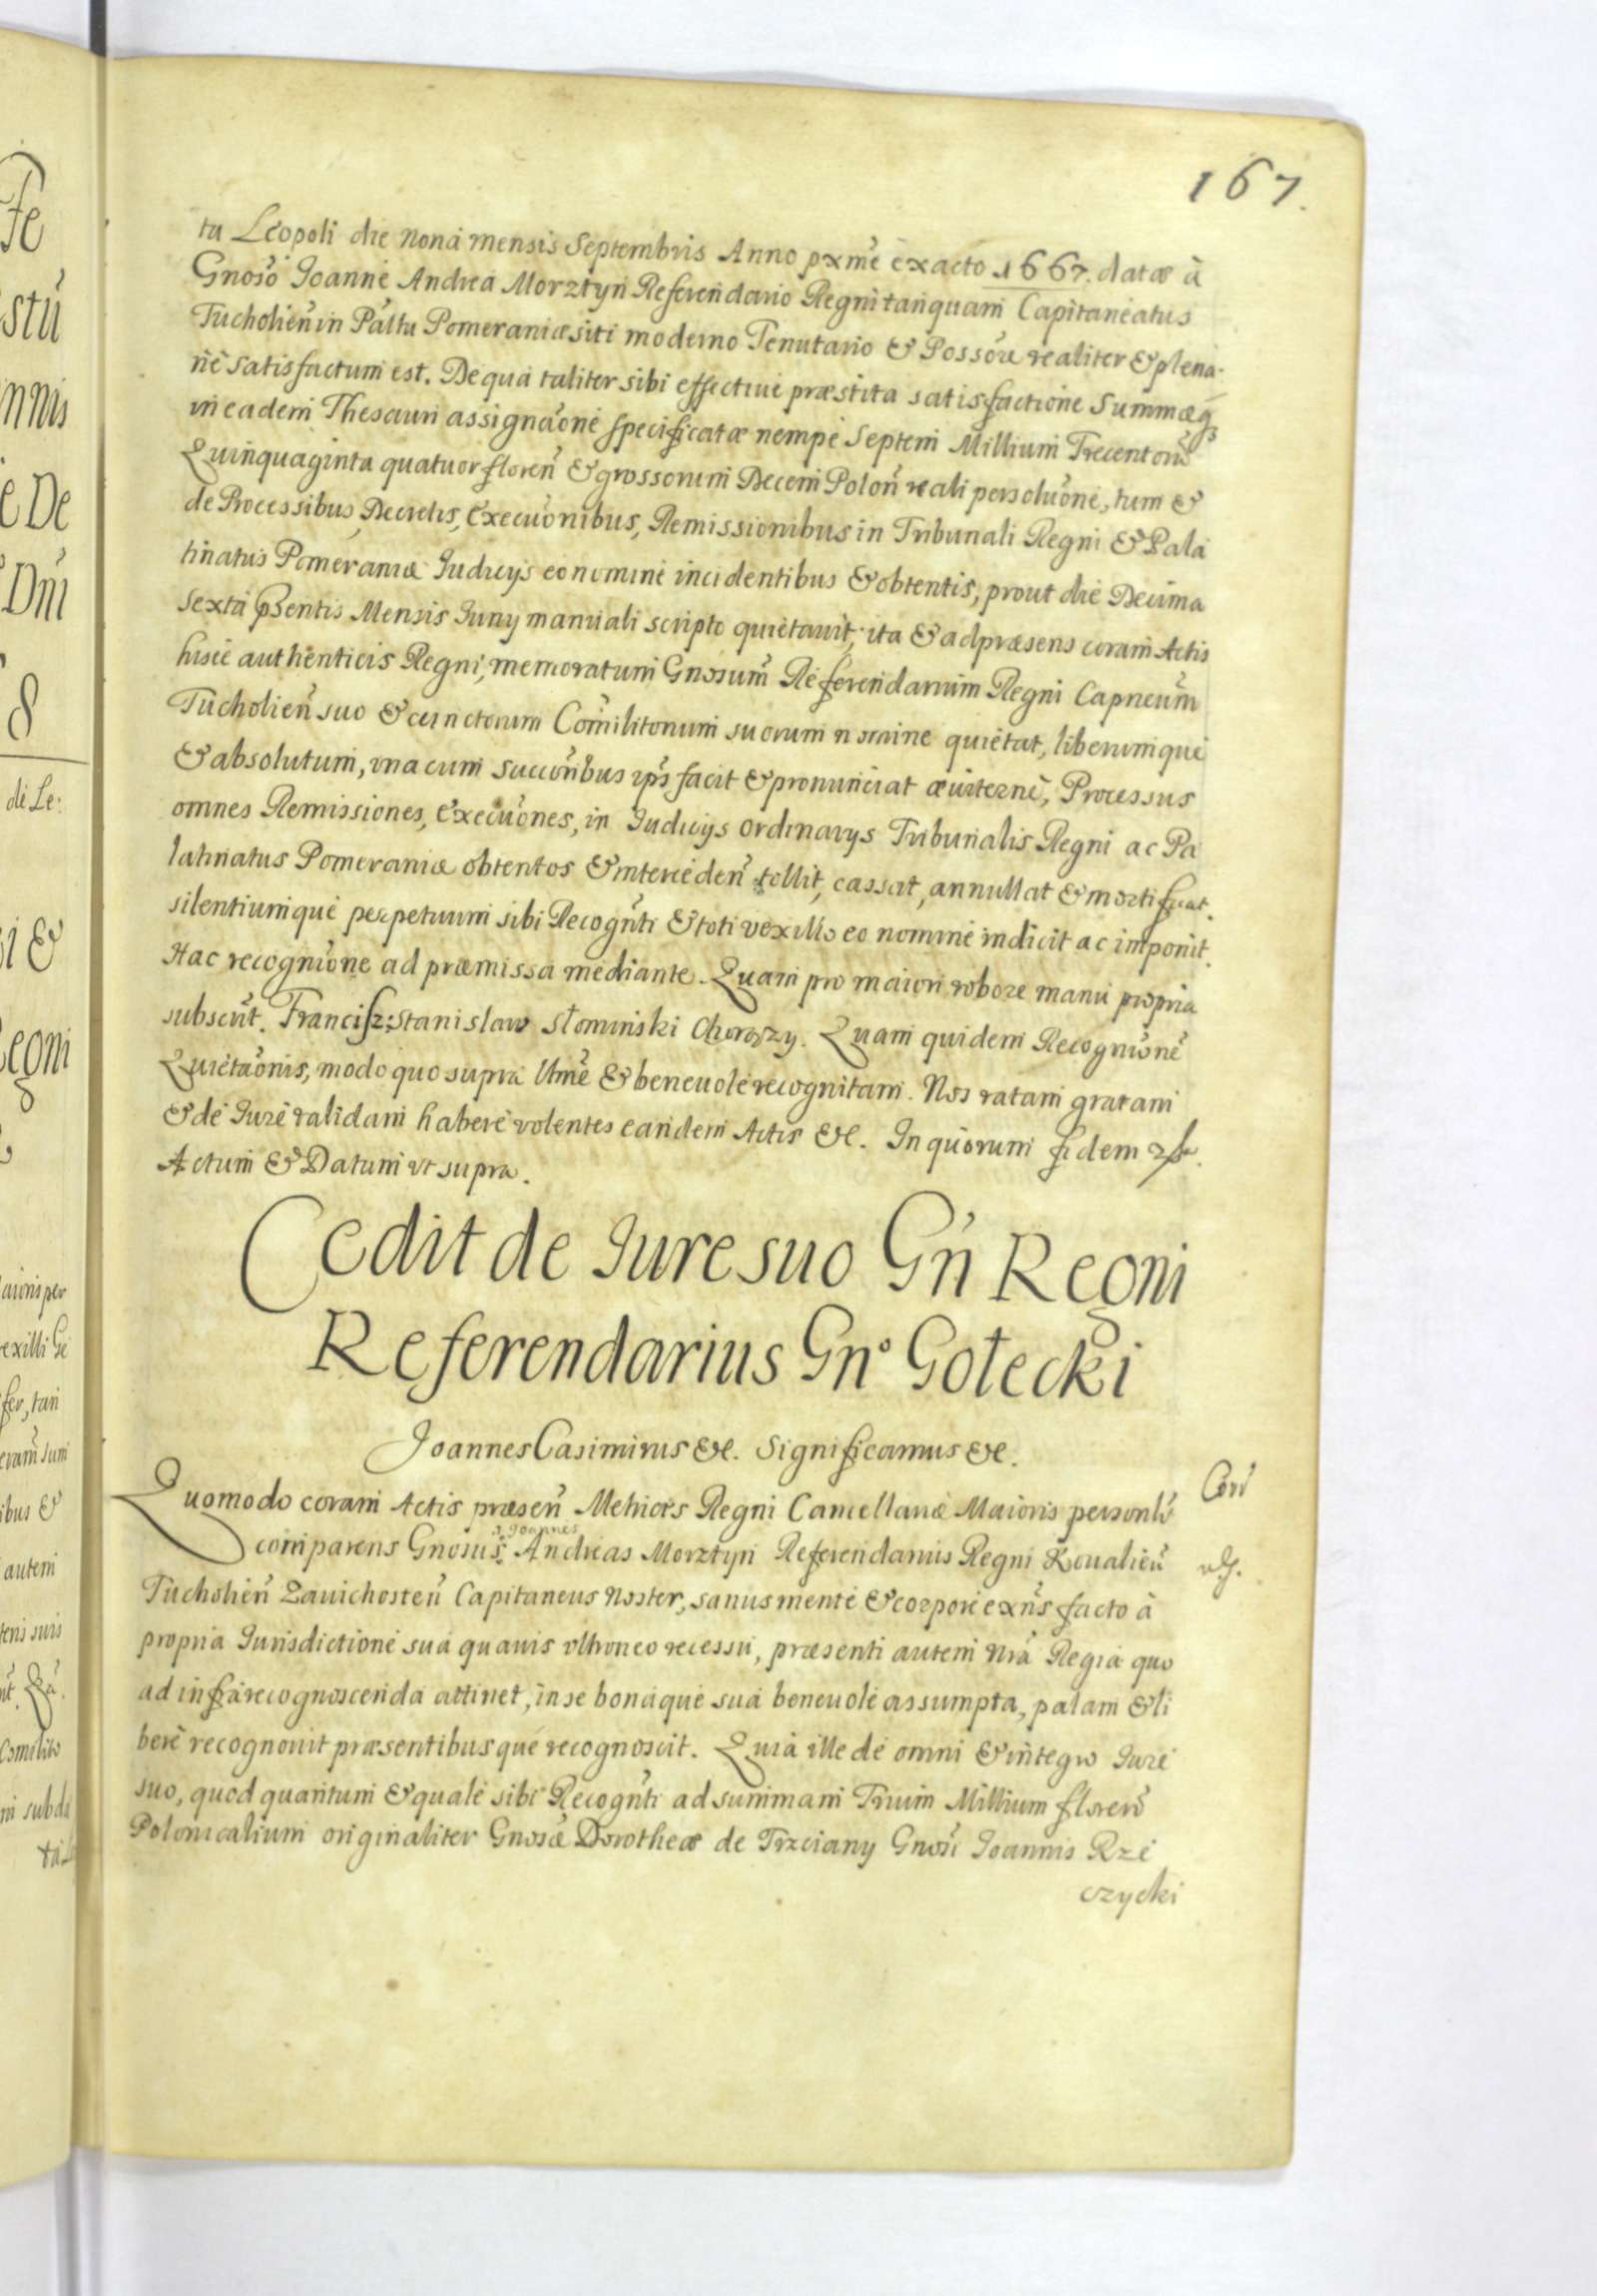 167.
ta Leopoli die nona mensis Septembris Anno pxme exacto 1667. datæ à
Gnoso Joanne Andrea Morztyn Referendario Regni tanquam Capitaneatus
Tucholień in Paltu Pomeraniæ siti moderno Tenutario & Possore realiter & plena-
nè satisfactum est. De qua taliter sibi effectiue præstita satisfactione Summæq3
in eadem Thesauri assignaone specificatæ nempe Septem Millium Trecentorū
Quinquaginta quatuor floreń & grossorum Decem Poloń reali persoluone, tum &
de Processibus, Decretis, Execuonibus, Remissionibus in Tribunali Regni & Pala
tinatus Pomeraniæ Iudicijs eo nomine incidentibus & obtentis, prout die Decima
sexta psentis Mensis Iunij manuali scripto quietauit, ita & ad præsens coram Actis
hisce authenticis Regni, memoratum Gnosum Referendarium Regni Capneum
Tucholień suo & cunctorum Comilitonum suorum nomine quietat, liberumque
& absolutum, vna cum succoribus ips facit & pronunciat æuiterne, Processus
omnes Remissiones, Execuones, in Iudicijs ordinarijs Tribunalis Regni ac Pa
latinatus Pomeraniæ obtentos & interceden tollit, cassat, annullat & mortificat.
silentiumque perpetuum sibi Recognti & toti vexillo eo nomine indicit ac imponit.
Hac recognione ad præmissa mediante. Quam pro maiori robore manu propria
subscut. Francisz: Stanislaw Słominski Chorąży. Quam quidem Recognionē
Quietaonis, modo quo supra Utme & beneuole recognitam. Nos ratam gratam
& de Iure validam habere volentes eandem Actis &c. In quorum fidem
Actum & Datum vt supra.
Cedit de Iure suo Gń Regni
Referendarius Gn° Gołecki
Joannes Casimirus &c. Significamus &c.
Quomodo coram Actis præseń Metrices Regni Cancellariæ Maioris personlr
Joannes
comparens Gnosus Andreas Morztyn Referendarius Regni Koualień
Tucholień Zauichosteń Capitaneus Noster, sanus mente & corpore exns facto à
propria Iurisdictione sua quauis vltroneo recessu, præsenti autem nra Regia quo
ad infra recognoscenda attinet, in se bonaque sua beneuole assumpta, palam & li
berè recognouit præsentibusque recognoscit. Quia ille de omni & integro Iure
suo, quod quantum & quale sibi Recognti ad summam Trium Millium floreń
Polonicalium originaliter Gnosæ Dorotheæ de Trzciany Gnosi Joannis Rze
czycki